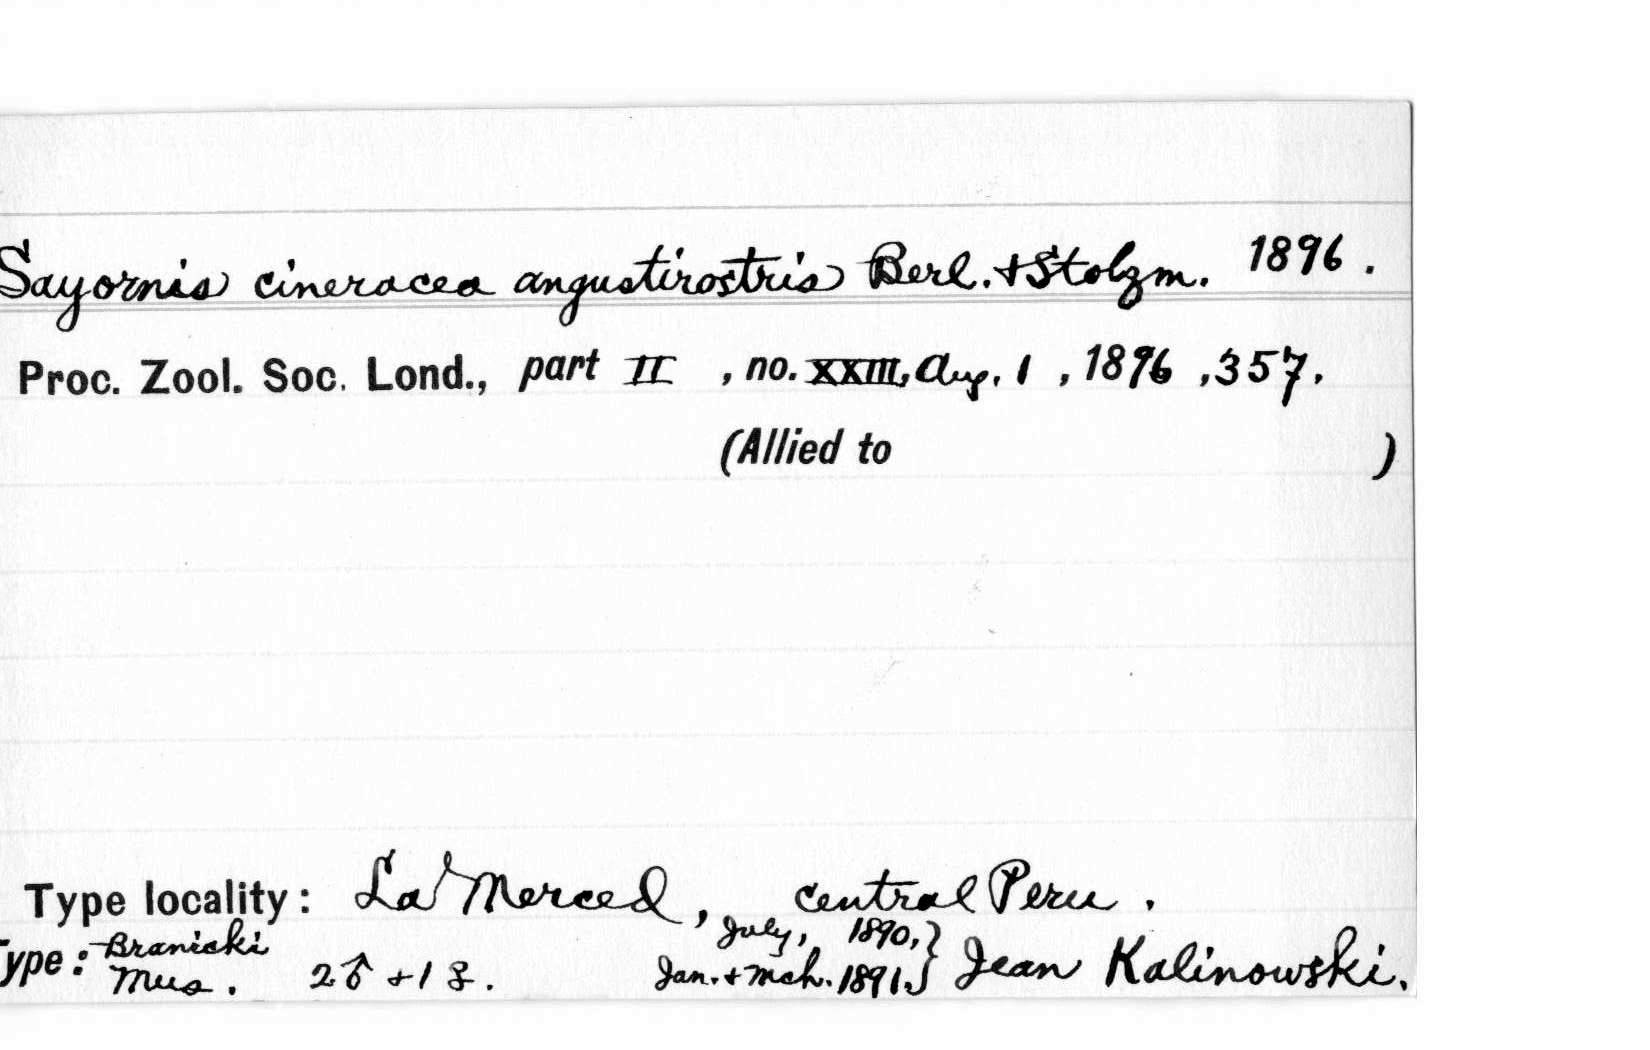 Sayornis cineracea angustirostris Berl. + Stolzm. 1896.
Proc. Zool. Soc. Lond., part II , no. XXIII, Aug. 1 , 1896 , 357.
(Allied to )
Type locality: La Merced, central Peru.
Type: Branicki Mus. 2♂ + 1♀. July, 1890, Jan. + Mch. 1891.} Jean Kalinowski.